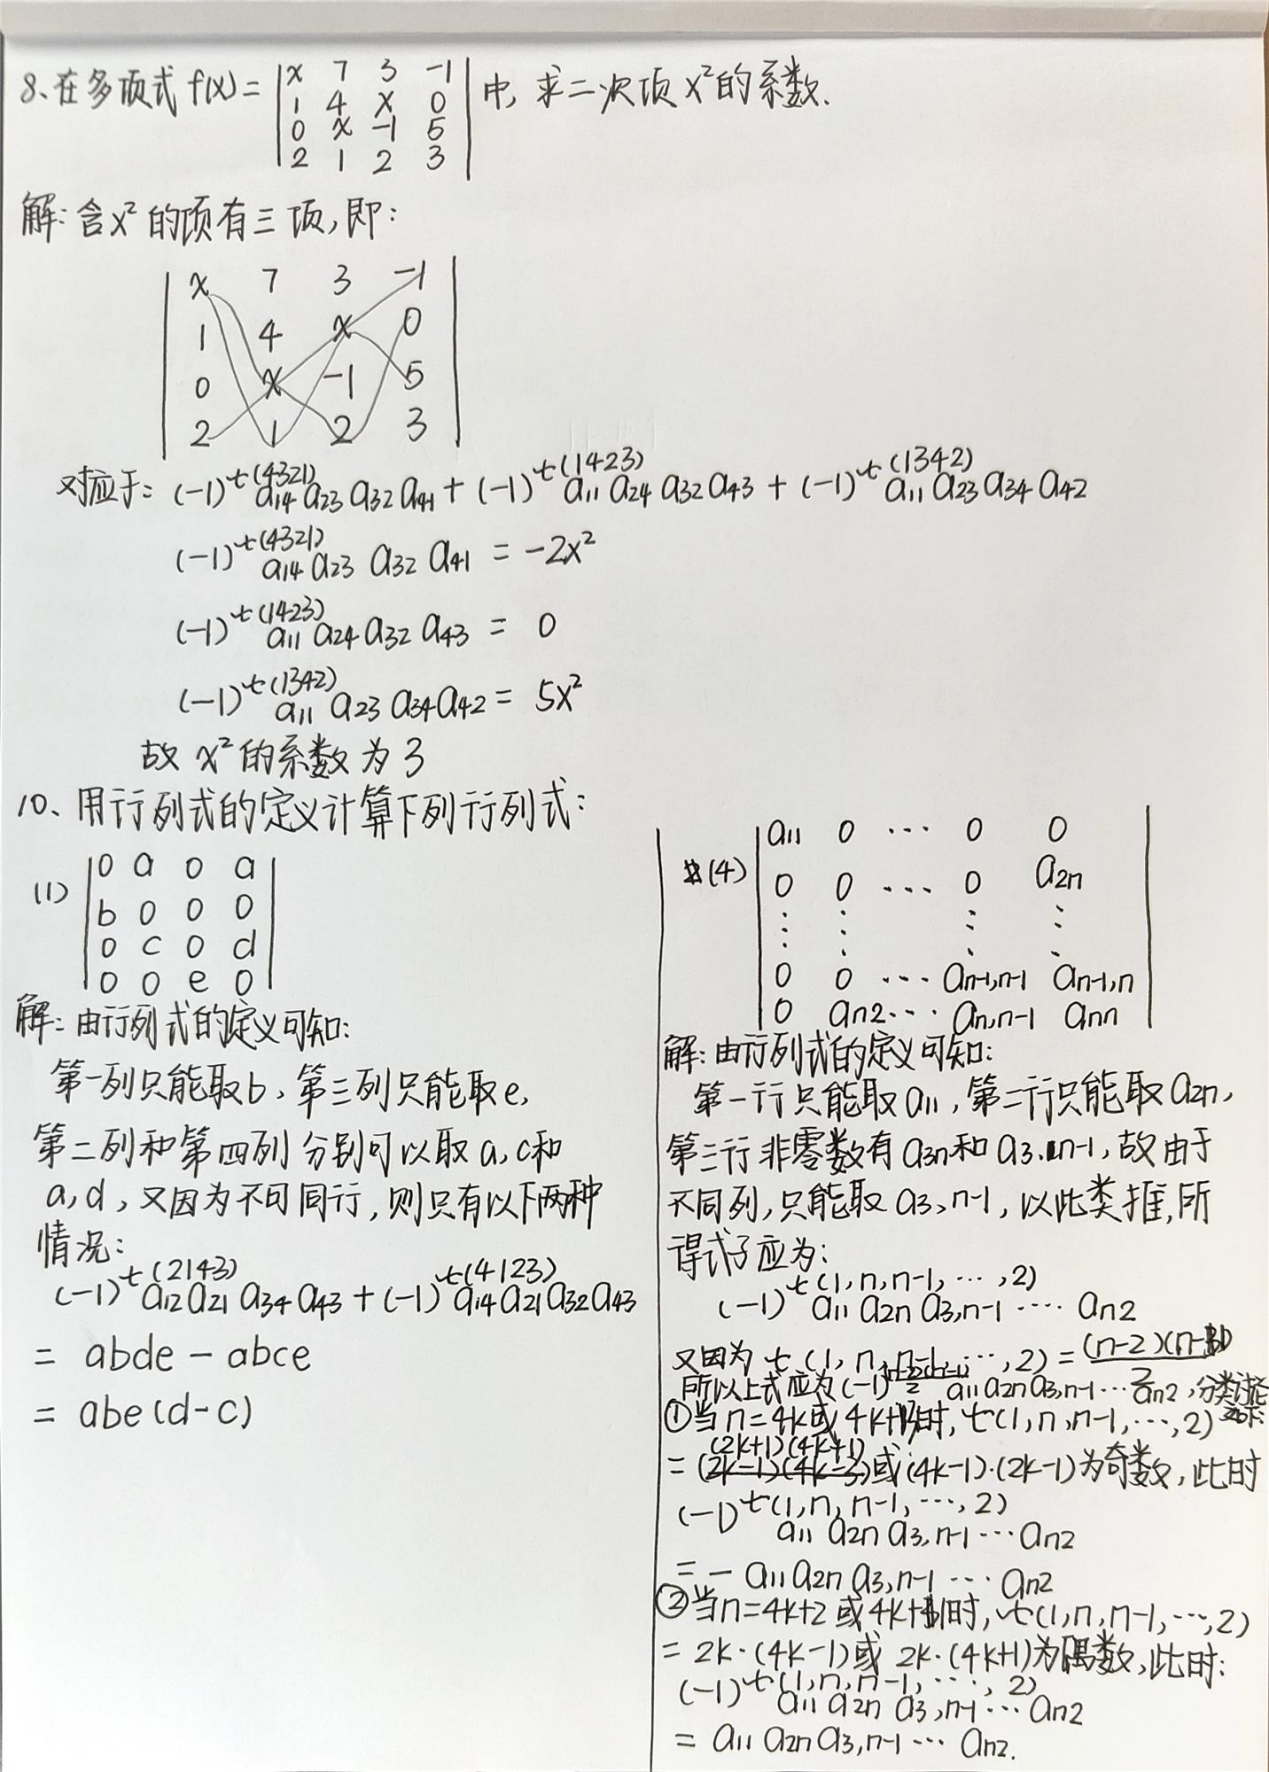 8、在多项式 f(x) = | x 7 3 -1 | 中, 求二次项 x² 的系数.
1 4 x 0
0 x -1 5
2 1 2 3
解: 含 x² 的项有三项, 即:
x 7 3 -1
1 4 x 0
0 x -1 5
2 1 2 3
对应于: (-1)^t(4321) a14 a23 a32 a41 + (-1)^t(1423) a11 a24 a32 a43 + (-1)^t(1342) a11 a23 a34 a42
(-1)^t(4321) a14 a23 a32 a41 = -2x²
(-1)^t(1423) a11 a24 a32 a43 = 0
(-1)^t(1342) a11 a23 a34 a42 = 5x²
故 x² 的系数为 3
10、用行列式的定义计算下列行列式:
(1) | 0 a 0 a |
b 0 0 0
0 c 0 d
0 0 e 0
解: 由行列式的定义可知:
第一列只能取b, 第三列只能取e,
第二列和第四列分别可以取a,c和
a,d, 又因为不可同行, 则只有以下两种
情况:
(-1)^t(2143) a12 a21 a34 a43 + (-1)^t(4123) a14 a21 a32 a43
= abde - abce
= abe(d-c)
(4) | a11 0 ⋯ 0 0 |
0 0 ⋯ 0 a2n
⋮ ⋮ ⋮ ⋮
0 0 ⋯ an-1,n-1 an-1,n
0 an2 ⋯ an,n-1 ann
解: 由行列式的定义可知:
第一行只能取a11, 第二行只能取a2n,
第三行非零数有a3n和a3,n-1, 故由于
不同列, 只能取a3,n-1, 以此类推, 所
得式子应为:
(-1)^t(1,n,n-1,⋯,2) a11 a2n a3,n-1 ⋯ an2
又因为 t(1,n,n-1,⋯,2) = (n-2)(n-1)/2
所以上式应为(-1) a11 a2n a3,n-1 ⋯ an2, 分类讨论如下:
①当n=4k或4k+ 时, t(1,n,n-1,⋯,2)
(2k+1)(4k+1)
= (2k-1)(4k-3)或(4k-1)·(2k-1)为奇数, 此时
(-1)^t(1,n,n-1,⋯,2) a11 a2n a3,n-1 ⋯ an2
= - a11 a2n a3,n-1 ⋯ an2
②当n=4k+2或4k+1时, t(1,n,n-1,⋯,2)
= 2k·(4k-1)或 2k·(4k+1)为偶数, 此时:
(-1)^t(1,n,n-1,⋯,2) a11 a2n a3,n-1 ⋯ an2
= a11 a2n a3,n-1 ⋯ an2.